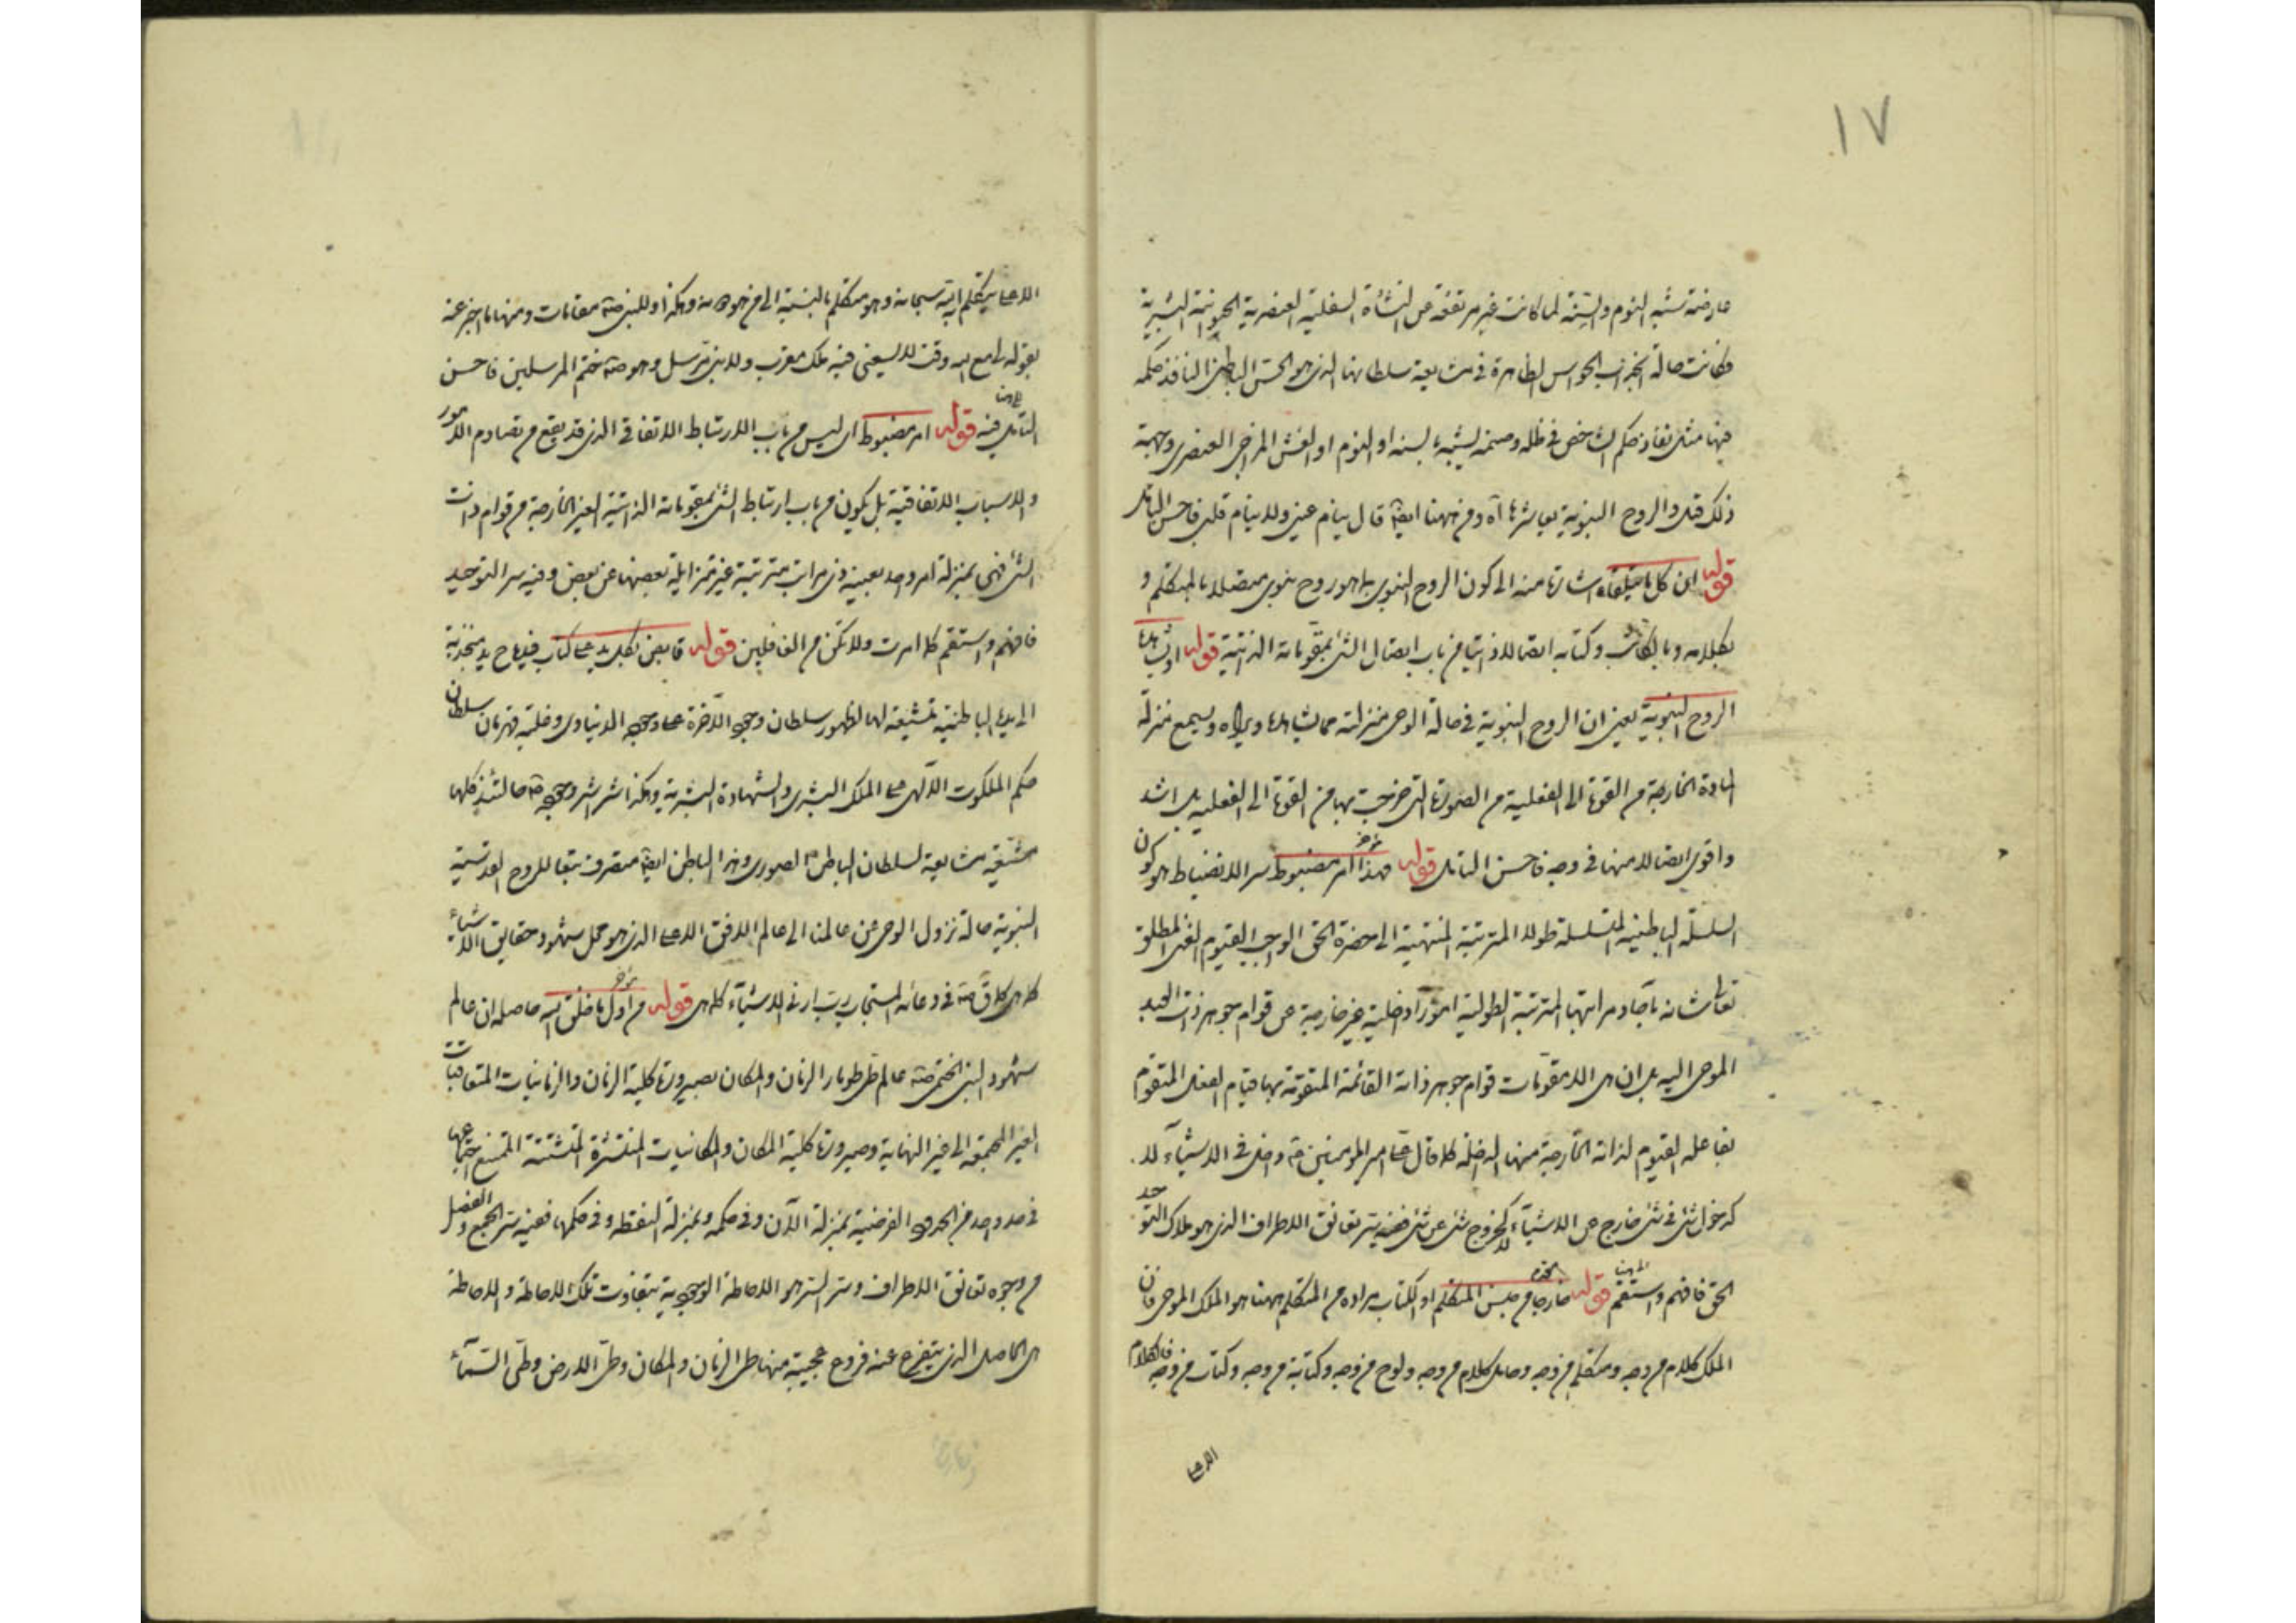 ١٧
عارضة تشبه النوم والسنة لما كانت غير مرتفعة عن النشأة السفلية العنصرية الحيوانية البشرية
فكانت حالة انجذاب الحواس الظاهرة في مشايعة سلطانها الذي هو الحس الباطن النافذ حكمه
فيها مثل نفاذ حكم الشاخص في ظله وصنمه يشبه بالسنة او النوم او الغش المزاجي العنصري وجهة
ذلك قبل والروح النبوية يعاشرها آه ومن ههنا ايضا قال ينام عيني ولا ينام قلبي فاحسن التأمل
قوله ان كل ما يتلقاه اشارة منه الى كون الروح النبوي بما هو روح نبوي متصلا بالمتكلم و
بكلامه وبالكاتب وكتابه اتصالا ذاتيا من باب اتصال الشئ بمقوماته الذاتية قوله او يشاهدها
الروح النبوية يعني ان الروح النبوية في حالة الوحي منزلته مما يشاهدها ويراه ويسمع منزلة
المادة الخارجة من القوة الى الفعلية من الصورة التي خرجت بها من القوة الى الفعلية بل اشد
واقوى اتصالا منها في وجه فاحسن التأمل قوله فهذا امر مضبوط سر الانضباط هو كون
السلسلة الباطنية المتسلسلة طولا المترتبة المنتهية الى حضرة الحق الواجب القيوم الغني المطلق
تعالى شانه بآحاد مراتبها المترتبة الطولية امورا داخلية غير خارجة عن قوام جوهر ذات العبد
الموحى اليه بل ان هي الا مقومات قوام جوهر ذاته القائمة المتقومة بها قيام الفعل المتقوم
بفاعله القيوم لذاته الخارجة منها الداخلة كما قال امير المؤمنين داخل في الاشياء لا
كدخول شئ في شئ خارج عن الاشياء لا كخروج شئ عن شئ ففيه سر تعانق الاطراف الذي هو ملاك التوحيد
الحق فافهم واستقم قوله خارجا من جنس المتكلم او الكتاب مراده من المتكلم ههنا هو الملك الموحى فان
الملك كلام من وجه ومتكلم من وجه وحامل كلام من وجه ولوح من وجه وكتابة من وجه وكتاب من وجه فالكلام
الاعلى
الاعلى يتكلم به سبحانه وهو متكلم بالنسبة الى من هو دونه وهكذا وللنبي مقامات ومنها ما اخبر عنه
بقوله لي مع الله وقت لا يسعني فيه ملك مقرب ولا نبي مرسل وهو ختم المرسلين فاحسن
التأمل فيه قوله امر مضبوط اي ليس من باب الارتباط الاتفاقي الذي قد يقع من تصادم الامور
والاسباب الاتفاقية بل يكون من باب ارتباط الشئ بمقوماته الذاتية الغير الخارجة من قوام ذات
الشئ فهي بمنزلة امر واحد بعينه ذي مراتب مترتبة غير متزايلة بعضها عن بعض وفيه سر التوحيد
فافهم واستقم كما امرت ولا تكن من الغافلين قوله قابض بكل يد على كتاب فيداه ح يد منجذبة
الى يدها الباطنية متشيعة لها لظهور سلطان وجهه الآخرة على وجهه الدنياوي وغلبة قهرمان سلطان
حكم الملكوت الالهي على الملك البشري والشهادة البشرية وهكذا شراشر وجوده حالتئذ كلها
متشيعة مشايعة لسلطان الباطن الصوري وهذا الباطن ايضا متصرف تبعا للروح القدسية
النبوية حالة نزول الوحي عن عالمنا الى عالم الافق الاعلى الذي هو محل شهود حقايق الاشياء
كما هي كما قال في دعائه المستجاب رب ارني الاشياء كما هي قوله من اول ما خلق الله حاصله ان عالم
شهود النبي الختمي عالم طي طومار الزمان والمكان بصيرورة كلية الزمان والزمانيات المتعاقبات
الغير المجتمعة الى غير النهاية وصيرورة كلية المكان والمكانيات المنتشرة المتشتتة الممتنع اجتماعها
في حد واحد من الحدود الفرضية بمنزلة الآن وفي حكمه وبمنزلة النقطة وفي حكمها، ففيه سر الجمع والفصل
من وجوه تعانق الاطراف وسر السر هو الاحاطة الوجودية بتفاوت تلك الاحاطة والاحاطة
هي الاصل الذي يتفرع عنه فروع عجيبة منها طي الزمان والمكان وطي الارض وطي السماء